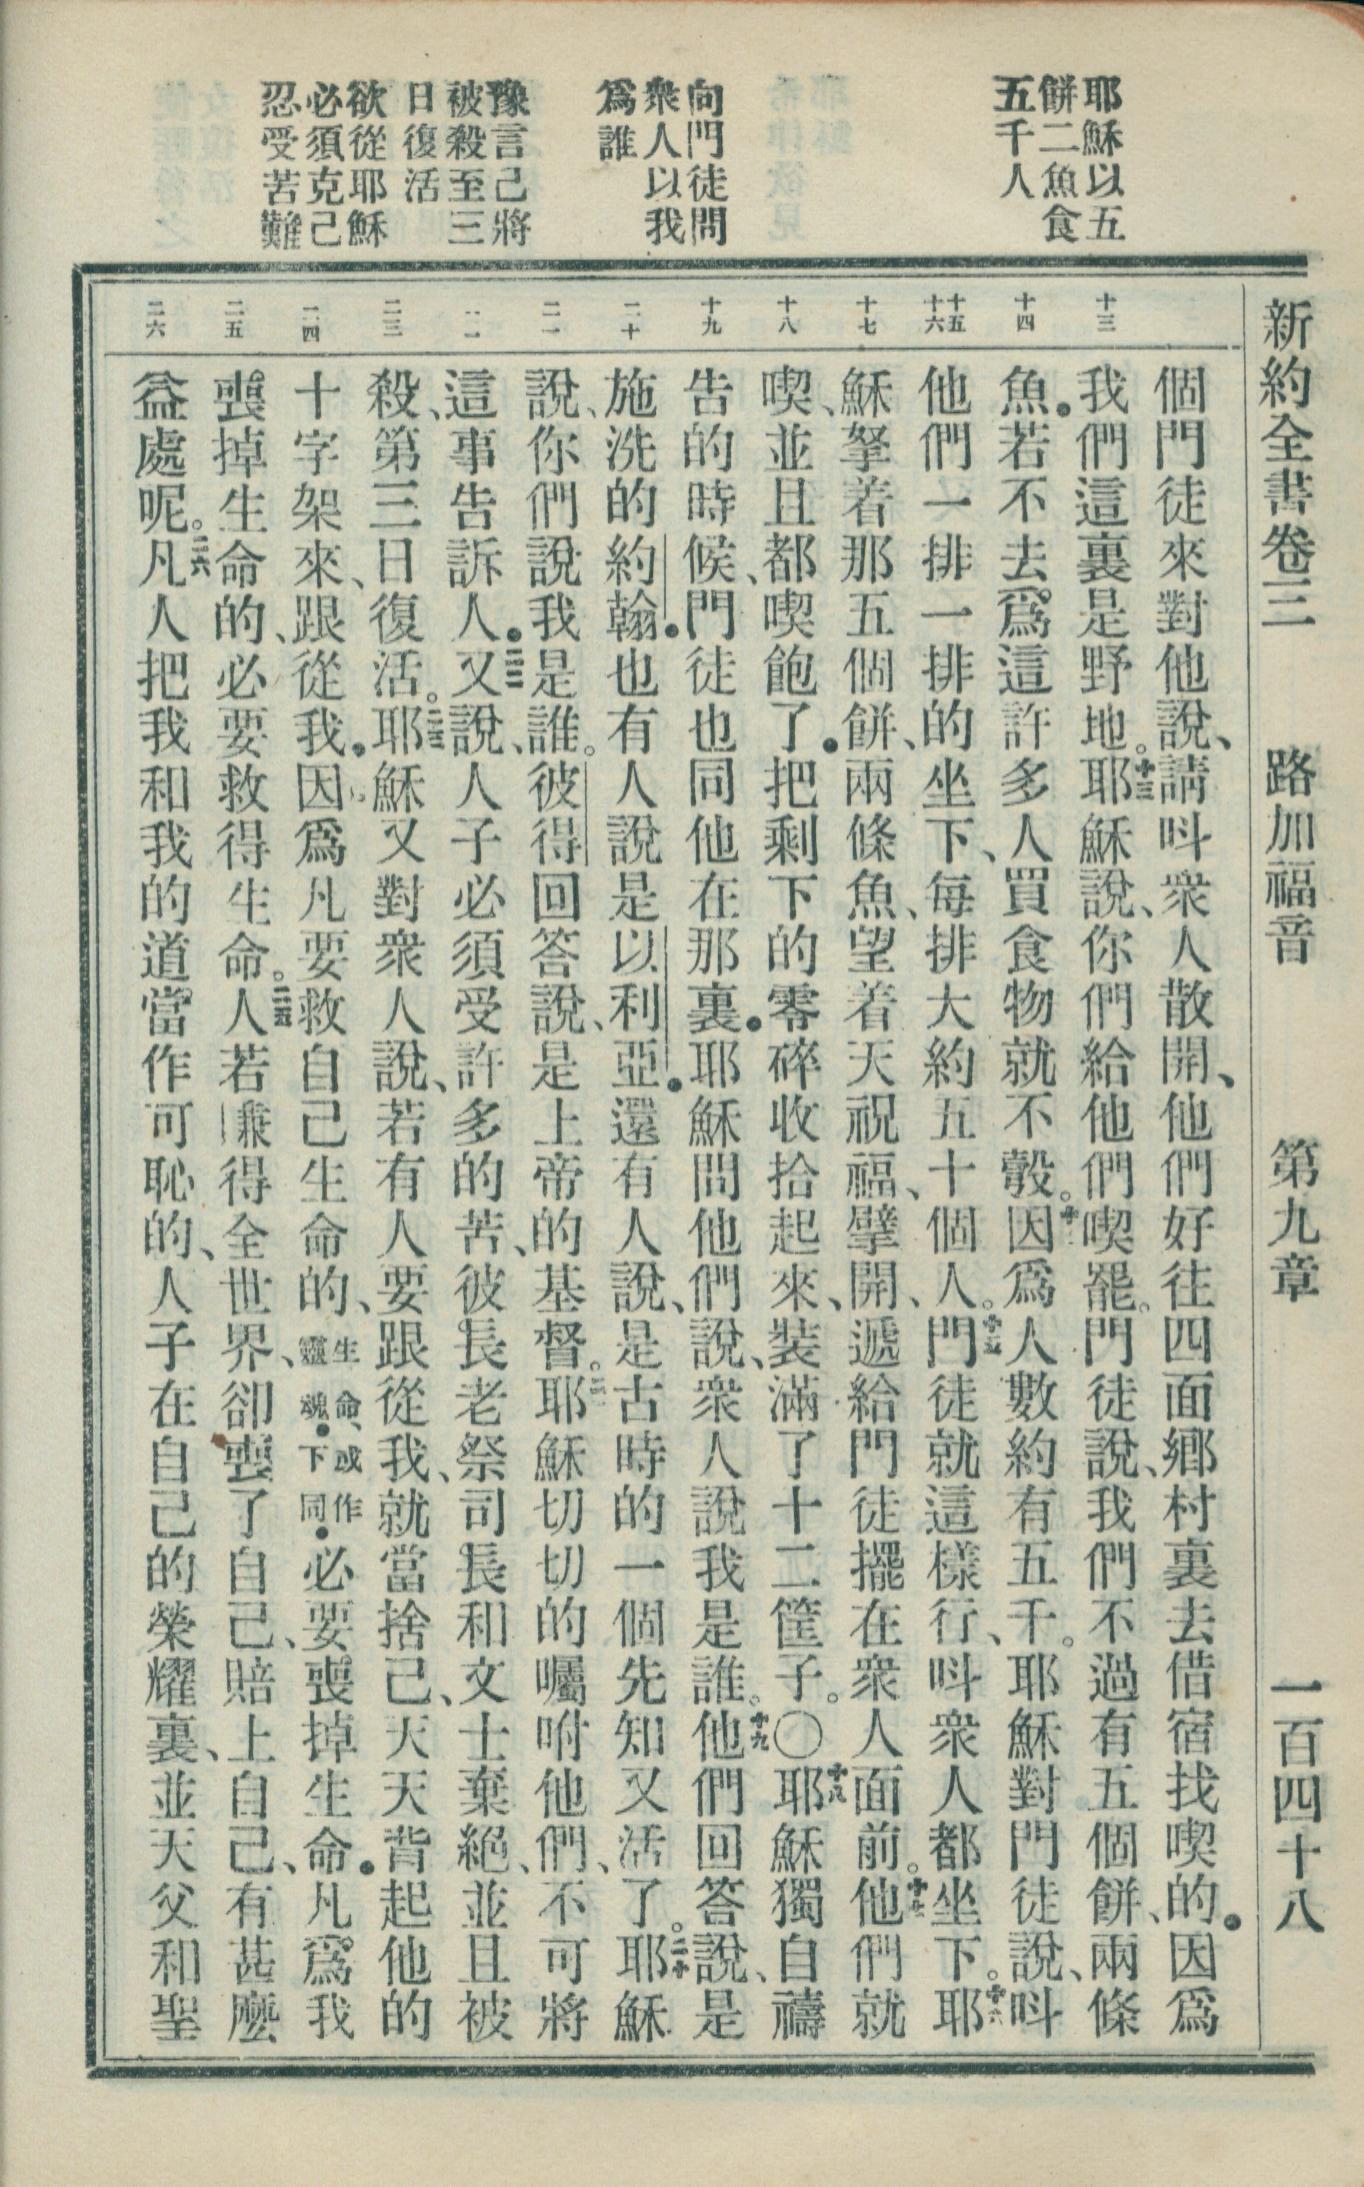 新約全書卷三　路加福音　第九章　一百四十八
耶穌以五
餅二魚食
五千人
向門徒問
衆人以我
爲誰
豫言己將
被殺至三
日復活
欲從耶穌
必須克己
忍受苦難
十三
十四
十五
十六
十七
十八
十九
二十
二一
二二
二三
二四
二五
二六
個門徒來對他說、請呌衆人散開、他們好往四面鄉村裏去借宿找喫的．因爲
我們這裏是野地。十三耶穌說、你們給他們喫罷。門徒說、我們不過有五個餅、兩條
魚．若不去爲這許多人買食物就不彀。十四因爲人數約有五千。耶穌對門徒說、呌
他們一排一排的坐下、每排大約五十個人。十五門徒就這樣行、呌衆人都坐下。十六耶
穌拏着那五個餅、兩條魚、望着天祝福、擘開、遞給門徒擺在衆人面前。十七他們就
喫、並且都喫飽了．把剩下的零碎收拾起來、裝滿了十二筐子。〇十八耶穌獨自禱
告的時候、門徒也同他在那裏．耶穌問他們說、衆人說我是誰。十九他們回答說、是
施洗的約翰．也有人說是以利亞．還有人說、是古時的一個先知又活了。二十耶穌
說、你們說我是誰。彼得回答說、是上帝的基督。二一耶穌切切的囑咐他們、不可將
這事告訴人．二二又說、人子必須受許多的苦、彼長老祭司長和文士棄絕、並且被
殺、第三日復活。二三耶穌又對衆人說、若有人要跟從我、就當捨己、天天背起他的
十字架來、跟從我．因爲凡要救自己生命的、生命、或作靈魂．下同．必要喪掉生命．凡爲我
喪掉生命的、必要救得生命。二五人若賺得全世界、卻喪了自己、賠上自己、有甚麼
益處呢。二六凡人把我和我的道當作可恥的、人子在自己的榮耀裏、並天父和聖